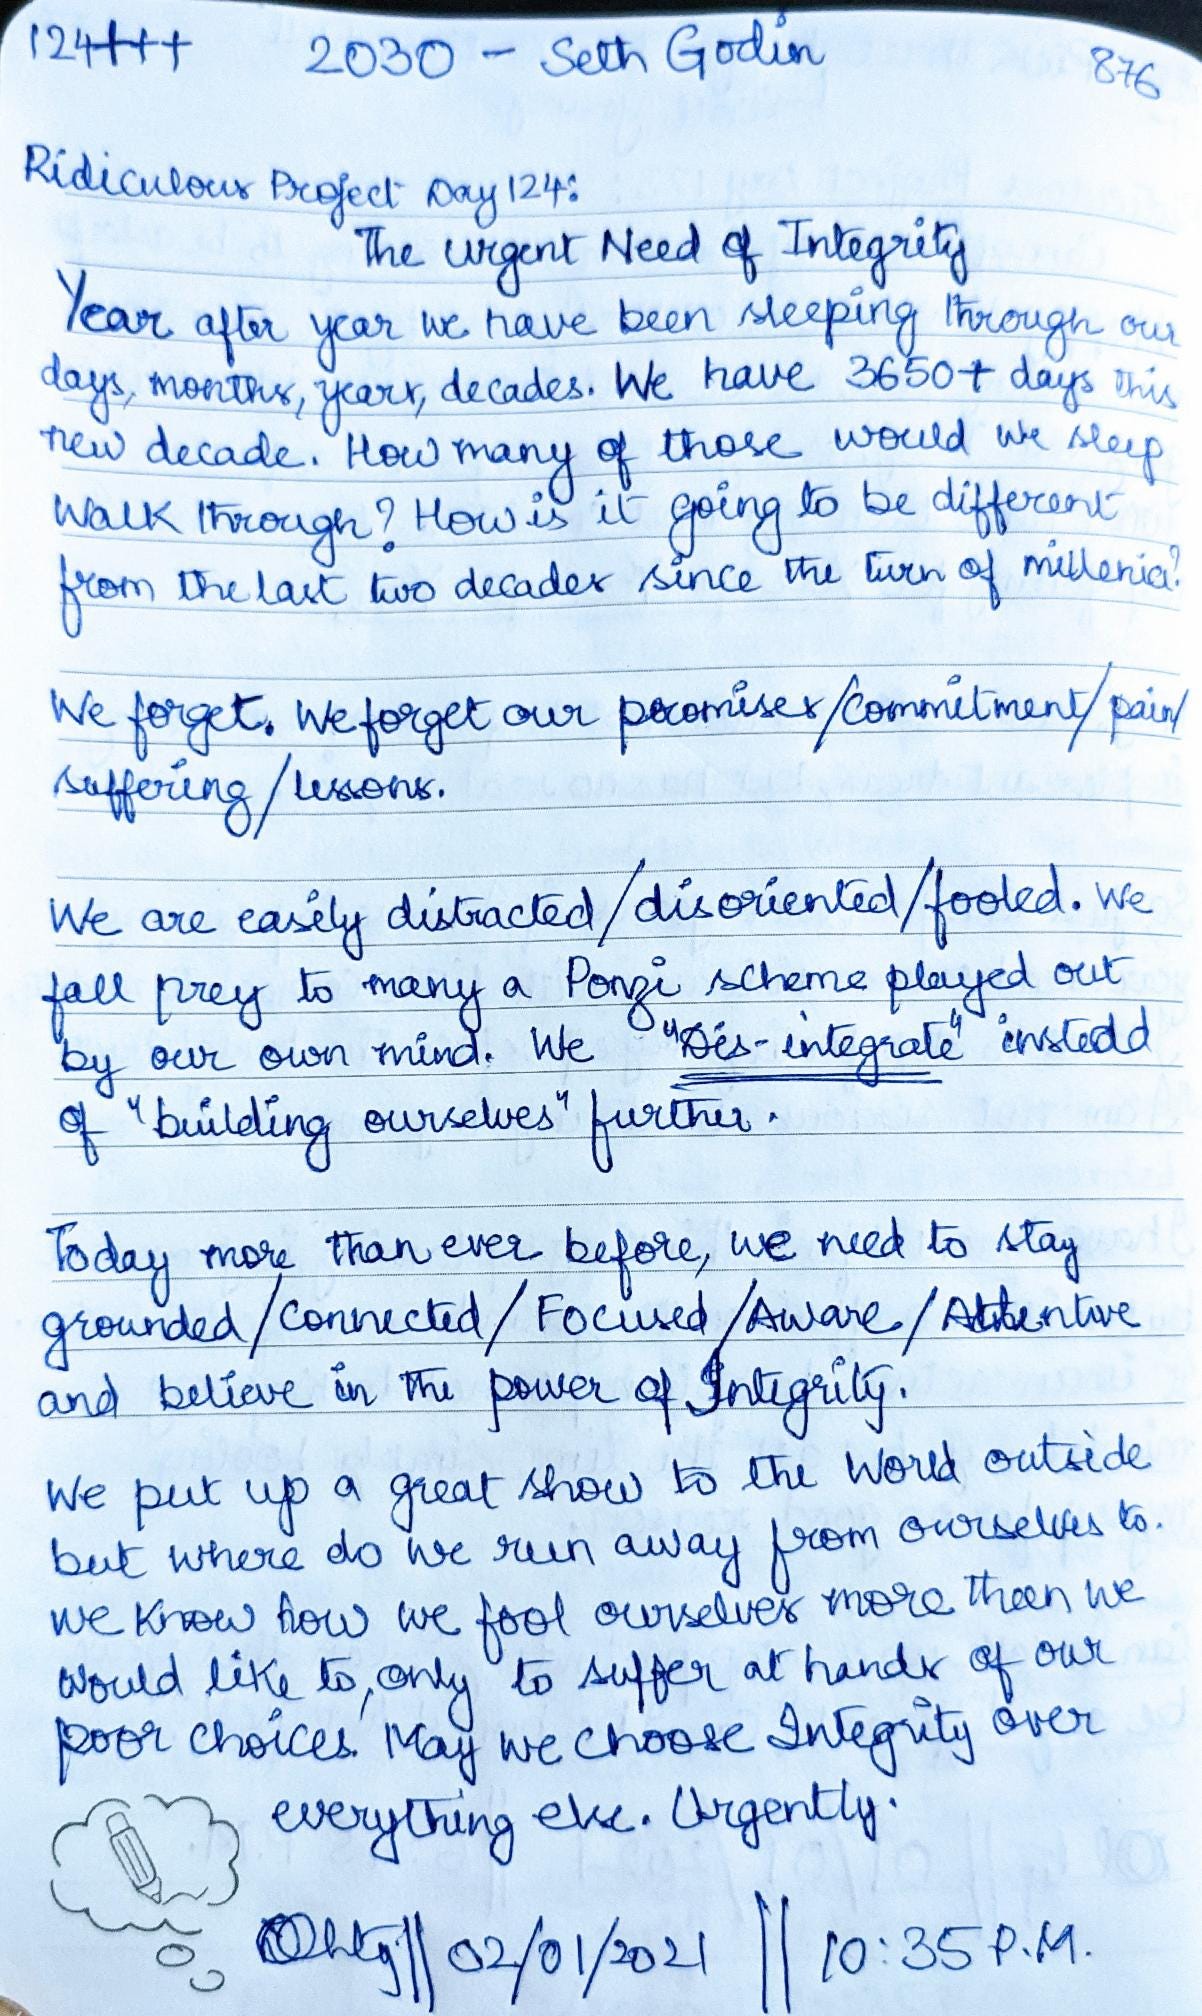 124+++ 2030 - Seth Godin 876
Ridiculous Project Day 124:
The Urgent Need of Integrity
Year after year we have been sleeping through our
days, months, years, decades. We have 3650+ days this
new decade. How many of those would we sleep
walk through? How is it going to be different
from the last two decades since the turn of millenia?
We forget. We forget our promises/commitment/pain/
suffering/lessons.
We are easily distracted/disoriented/fooled. We
fall prey to many a Ponzi scheme played out
by our own mind. We "Dis-integrate" instedd
of "building ourselves" further.
Today more than ever before, we need to stay
grounded/connected/Focused/Aware/Attentive
and believe in the power of Integrity.
We put up a great show to the world outside
but where do we run away from ourselves to.
We know how we fool ourselves more than we
would like to, only to suffer at hands of our
poor choices. May we choose Integrity over
everything else. Urgently.
|| 02/01/2021 || 10:35 P.M.